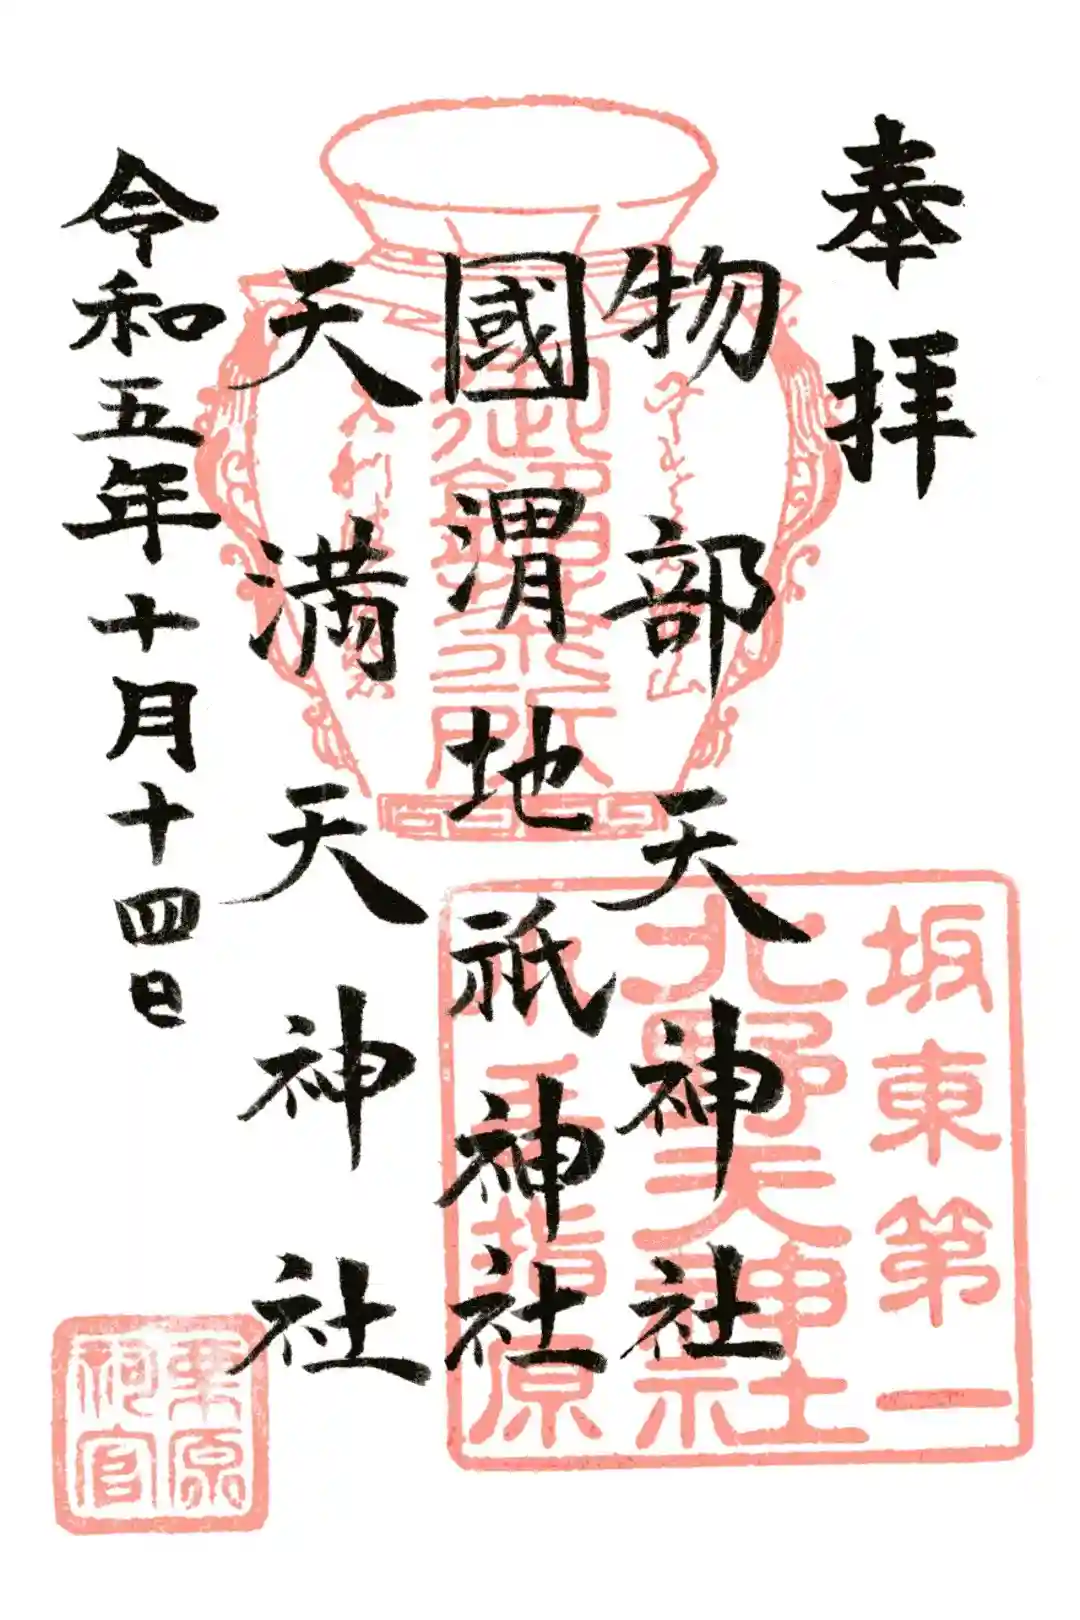 奉拝
物部天神社
國渭地祇神社
天満天神社
令和五年十月十四日
坂東第一
北野天神社
原
栗原
祠官